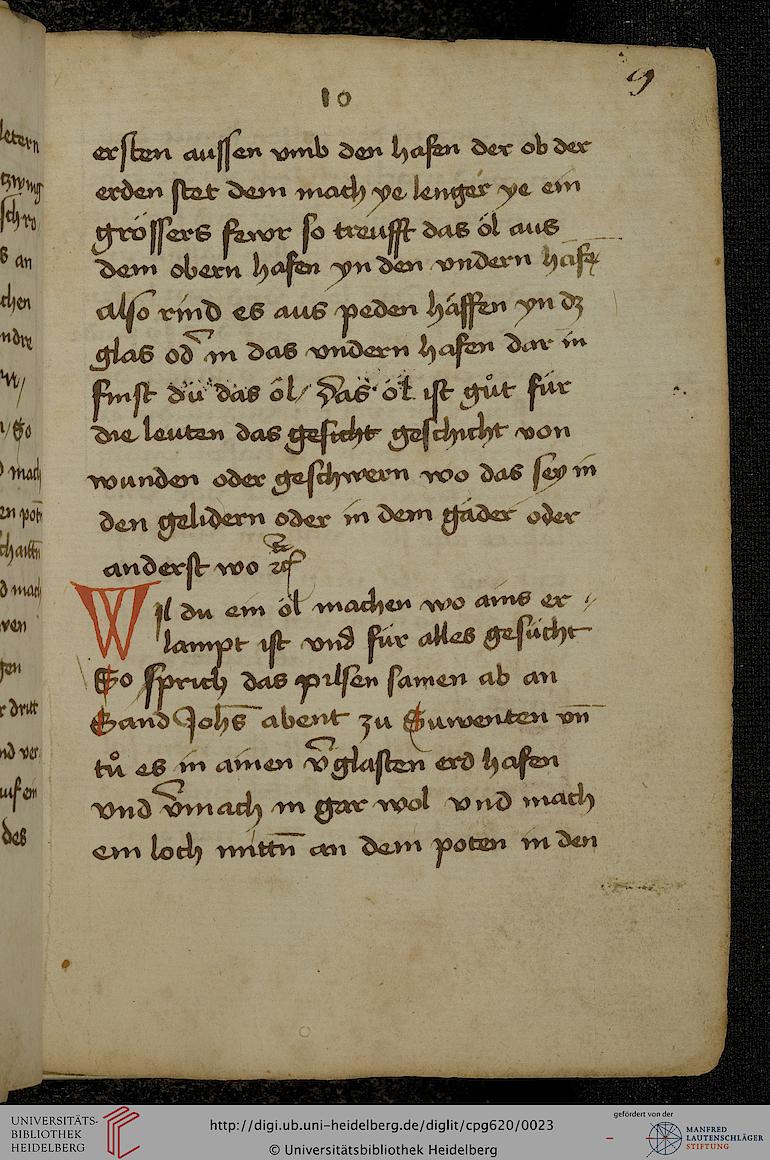 10
9
ersten aussen vmb den hafen der ob der
erden stet dem mach ye lenger ye ein
grössers fewr so treufft das öl aus
dem obern hafen yn den vndern hafē
also rind es aus peden häffen yn dz
glas od᷑ in das vndern hafen dar in
finst du das öl / Das öl ist gůt für
die leuten das gesicht geschicht von
wunden oder geschwern wo das sey in
den gelidern oder in dem gäder oder
anderst wo ꝛc
Wil du ein öl machen wo ains er⸗
lampt ist vnd für alles gesücht
So sprich das pilsen samen ab an
Sand Johs̄ abent zu Suwenten vn̄
tů es in ainen v᷑glasten erd hafen
vnd v᷑mach in gar wol vnd mach
ein loch mittn̄ an dem poten in den
letern
tzwing
schro
s an
chen
ndre
/ So
d mach
en potn̄
d mach
gen
r dritt
nd ver
auf ein
des
UNIVERSITÄTS-
BIBLIOTHEK
HEIDELBERG
http://digi.ub.uni-heidelberg.de/diglit/cpg620/0023
© Universitätsbibliothek Heidelberg
gefördert von der
MANFRED
LAUTENSCHLÄGER
STIFTUNG